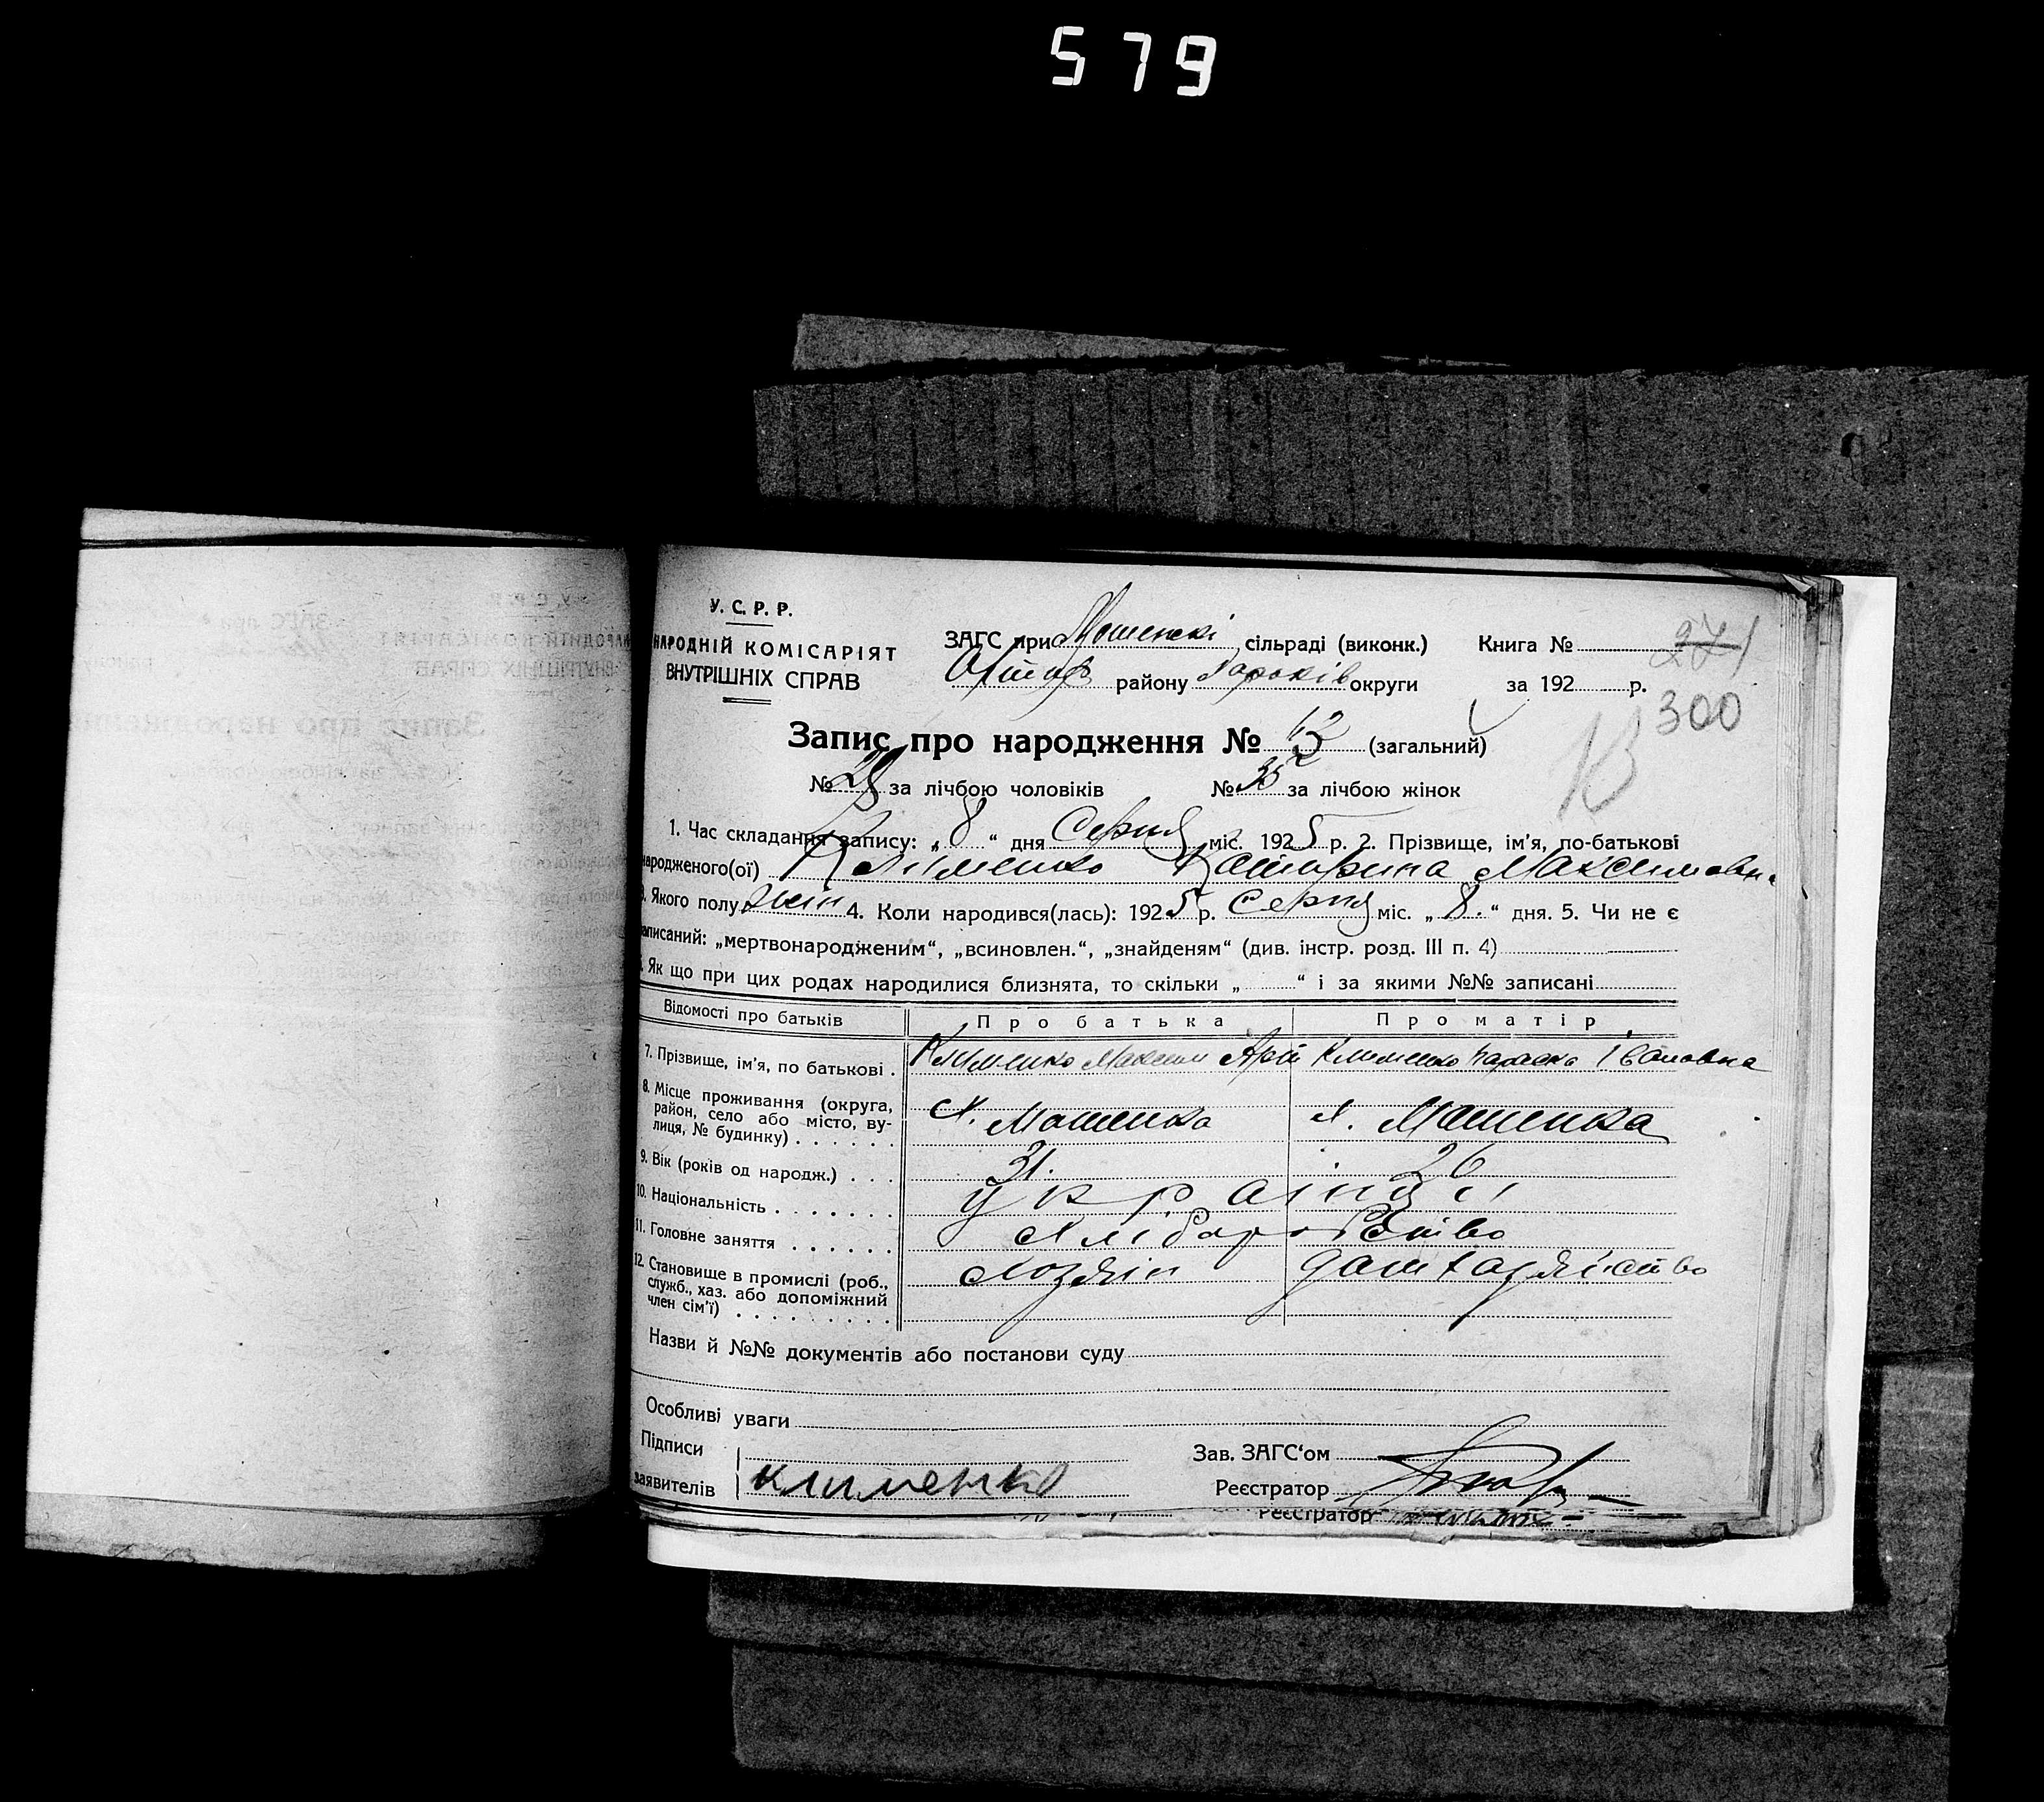 579
У. С. Р. Р.
НАРОДНІЙ КОМІСАРІЯТ
ВНУТРІШНІХ СПРАВ
ЗАГС при Мошенскі сільраді (виконк.) Книга №
району округи за 192 р.
271
300
Запис про народження № (загальний)
№ 28 за лічбою чоловіків № 35 за лічбою жінок
1. Час складання запису: „ 8 “ дня Серпня міс. 1925 р. 2. Прізвище, ім'я, по-батькові
народженого(ої) Кліменко Катирина Максимовна
3. Якого полу жін 4. Коли народився(лась): 1925 р. Серпня міс. „ 8. “ дня. 5. Чи не є
записаний: „мертвонародженим“, „всиновлен.“, „знайденям“ (див. інстр. розд. III п. 4)
6. Як що при цих родах народилися близнята, то скільки „ “ і за якими №№ записані
Відомості про батьків Про батька Про матір
7. Прізвище, ім'я, по батькові . Клименко Максим Клименко Параска Івановна
8. Місце проживання (округа,
район, село або місто, ву-
лиця, № будинку) . . . . . . Х. Мошенка Х. Мошенка
9. Вік (років од народж.) . . . 31. 26
10. Національність . . . . . . . українці
11. Головне заняття . . . . . . Хліборобство
12. Становище в промислі (роб.,
служб., хаз. або допоміжний
член сім'ї) . . . . . . . . . Хозяін
Назви й №№ документів або постанови суду
Особливі уваги
Підписи
заявителів клименко
Зав. ЗАГС'ом
Реєстратор
Реєстратор